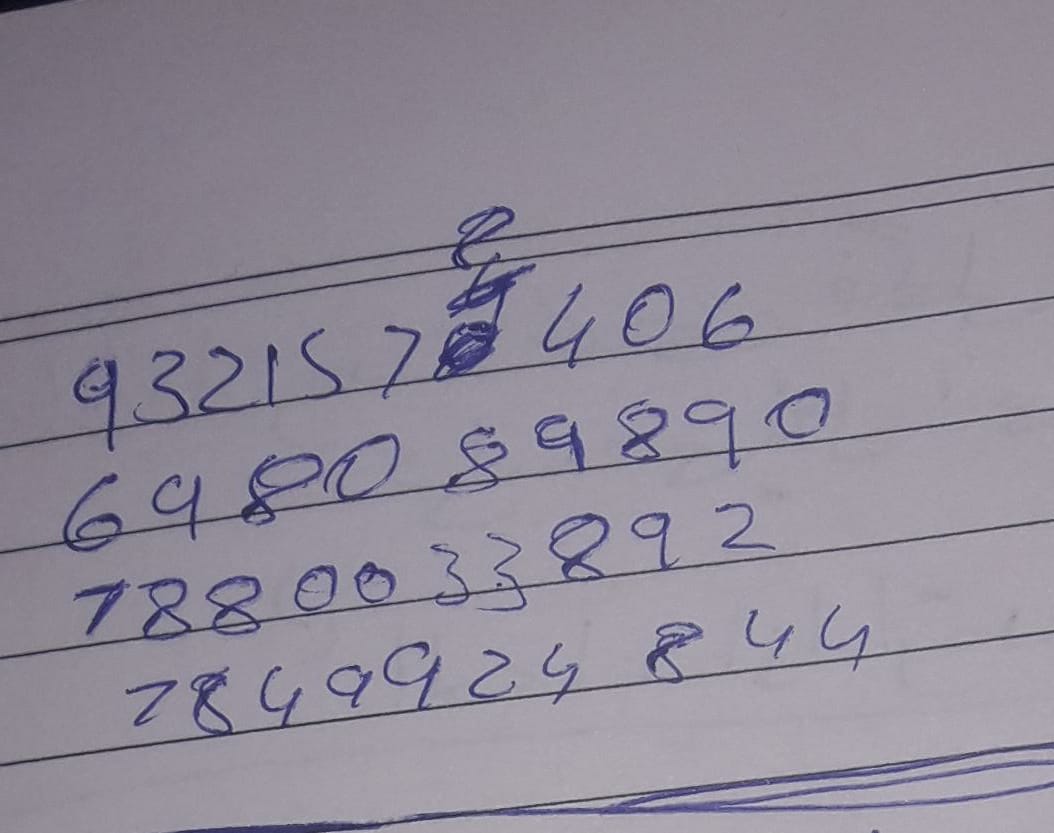 932157 406
6980 89890
7880033892
7849924 844